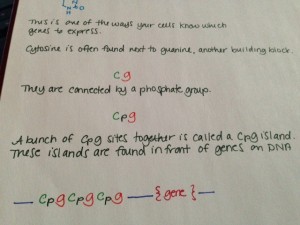 This is one of the ways your cells know which
genes to express.
Cytosine is often found next to guanine, another building block.
C g
They are connected by a phosphate group.
Cpg
A bunch of Cpg sites together is called a Cpg island.
These islands are found in front of genes on DNA
— Cpg Cpg Cpg — { gene } —